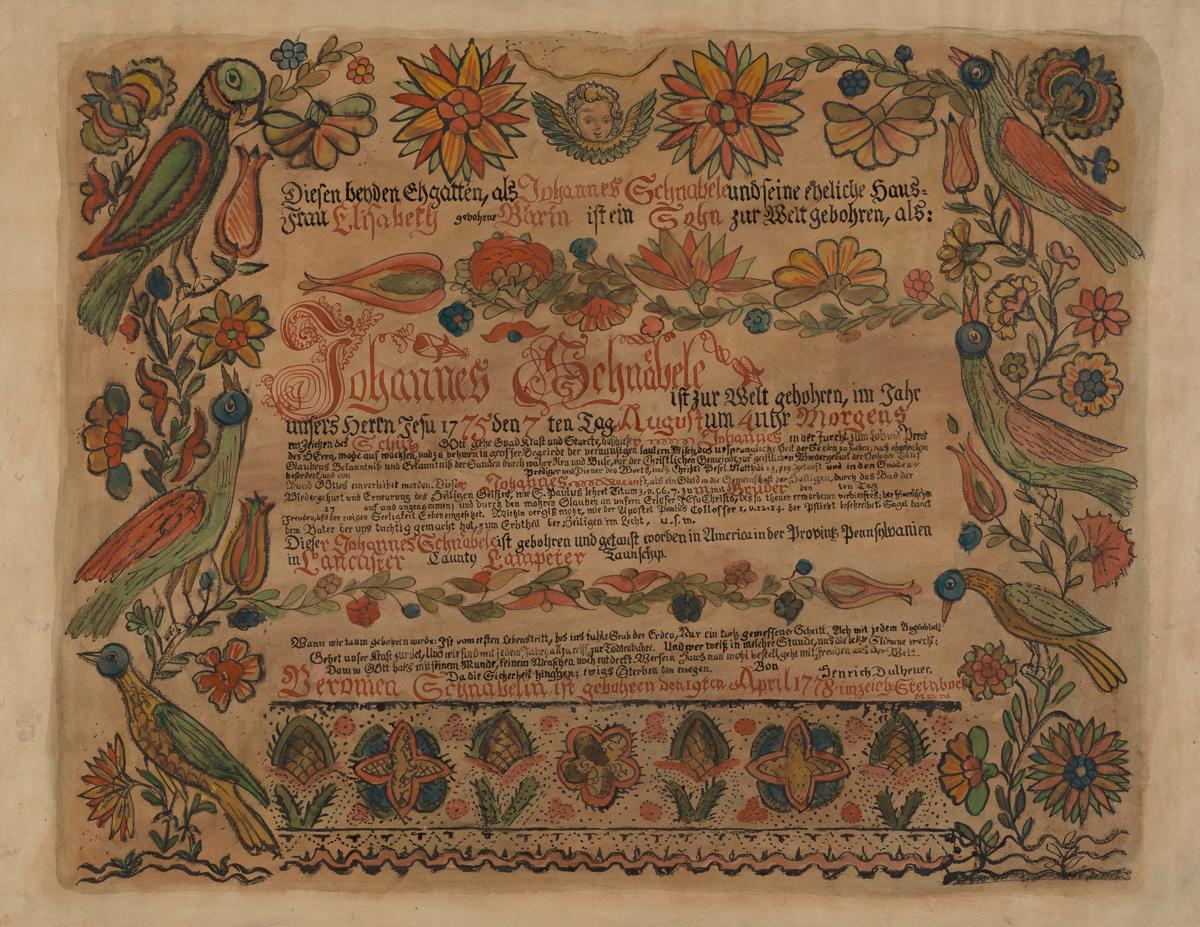 Diesen beyden Ehgatten, als Johannes Schnabele und seine eheliche Haus=
Frau Elisabeth gebohrne Barin ist ein Sohn zur Welt gebohren, als:
Johannes Schnäbele
ist zur Welt gebohren, im Jahr
unsers Herrn Jesu 1775 den 7 ten Tag August um 4 uhr Morgens
im Zeichen des Schütz Gott gebe Gnad Krafft und Staercke, daß dieser Johannes in der Furcht, zum Lob und Preis
des HErrn, möge auf wachsen, und zu nehmen in grosser Begierde der vernünftigen lautern Milch, des ursprünglich
Glaubens Bekantnis und Erkantnis der Sünden durch wahre Reu und Buse, vor der Christlichen Gemeinde, zur geistlichen Wiedergeburt der Heiligen Tauf
befördert, und von Prediger und Diener des Worts, nach Christi Befel getauft und in den Gnaden
Bund Gottes einverleibt worden. Dieser Johannes als ein Glied in die Gemeinschaft der Heiligen, durch das Bad der
Wiedergeburt und Erneurung des Heiligen Geistes, wie S. Paulus lehret Titum 3, v. 5, 6, 7. mit Brüder den ten Tag
17 auf und angenommen; und durch den wahren Glauben an unsern Erlöser Jesu Christo, des so theuer erworbenen verdienstes; der himmlischen
Freuden, und der ewigen Seeligkeit Erben eingesetzet. Mithin vergiß nicht, wie der Apostel Paulus Collosser 1, v. 12. 14. der Pflicht beschreibet. Saget danck
dem Vater der uns tüchtig gemacht hat, zum Erbtheil der Heiligen im Licht, u. s. w.
Dieser Johannes Schnabele ist gebohren und getauft worden in America in der Provintz Pennsylvanien
in Lancaster Caunty Lampeter Taunschip.
Wann wir kaum gebohren werde: Ist vom ersten Lebenstritt, bis ins kühle Grab der Erden, Nur ein kurtz gemessener Schritt. Ach mit jedem Augenblick!
Gehet unser Kraft zurück, Und wir sind mit jedem Jahre, allzu reiff, zur Todtenbahre. Und wer weiß in welcher Stunde, uns die letzte Stimme weckt:
Dann Gott hats mit seinem Munde, keinem Menschen noch entdeckt. Wer sein Haus nun wohl bestellt, geht mit freuden aus der Welt.
Da die Sicherheit hingegen; ewigs Sterben kan erregen. Von Henrich Dulheuer.
Veronica Schnabelin ist gebohren den 19ten April 1778 im zeich: Steinbock